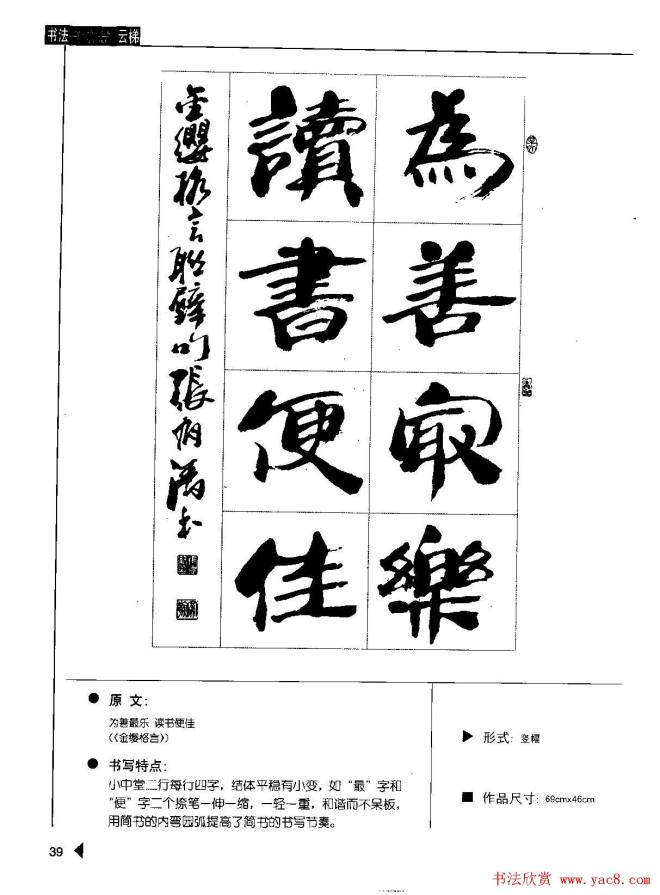 书法 云梯
為善最樂
讀書便佳
金纓格言聯璧句張
原 文：
为善最乐 读书便佳
《《金缨格言》》
书写特点：
小中堂二行每行四字，结体平稳有小变，如“最”字和
“便”字二个捺笔一伸一缩，一轻一重，和谐而不呆板，
用简书的内弯园弧提高了简书的书写节奏。
形式：竖幅
作品尺寸：69cmx46cm
39
书法欣赏 www.yac8.com